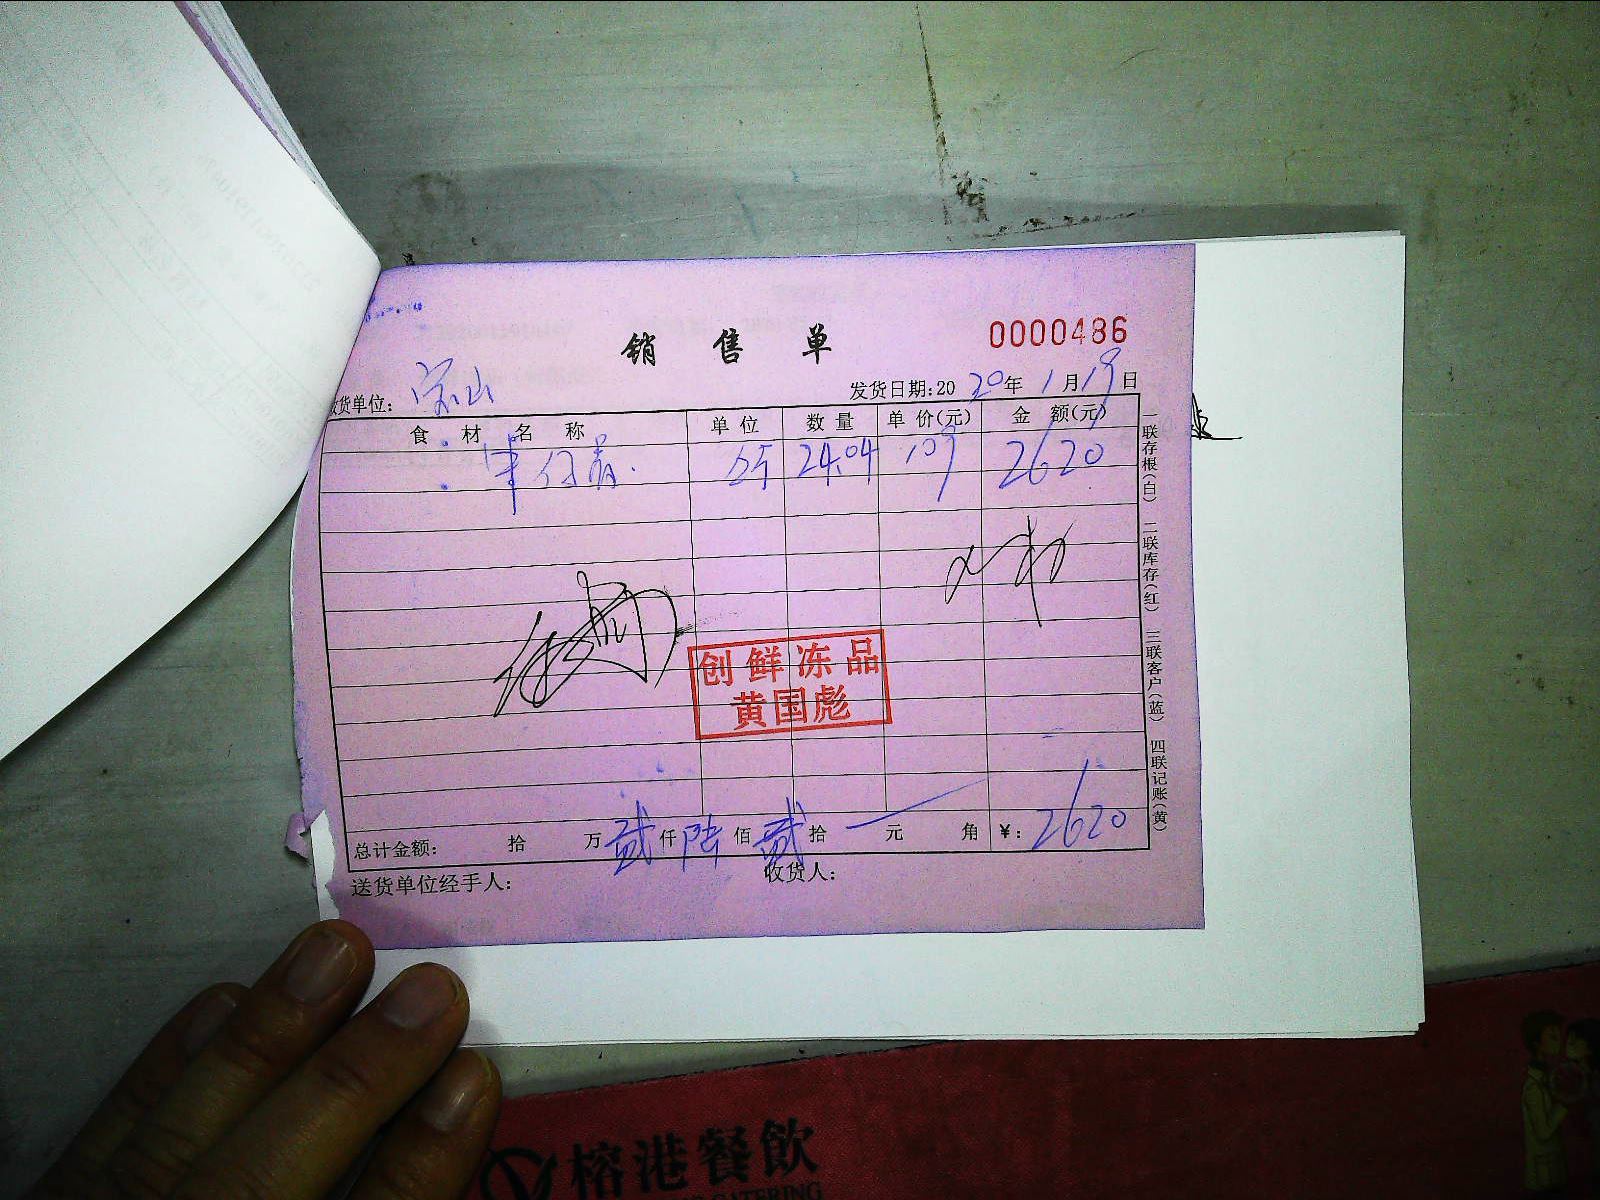 销售单
0000486
货单位: 宝山
发货日期:20 20年 1月19日
食材名称 单位 数量 单价(元) 金额(元)
斤 24.04 109 2620
创鲜冻品
黄国彪
总计金额: 拾 万 贰仟 陆佰 贰拾 元 角 ¥: 2620
送货单位经手人: 收货人:
一联存根(白) 二联库存(红) 三联客户(蓝) 四联记账(黄)
榕港餐飲
CATERING